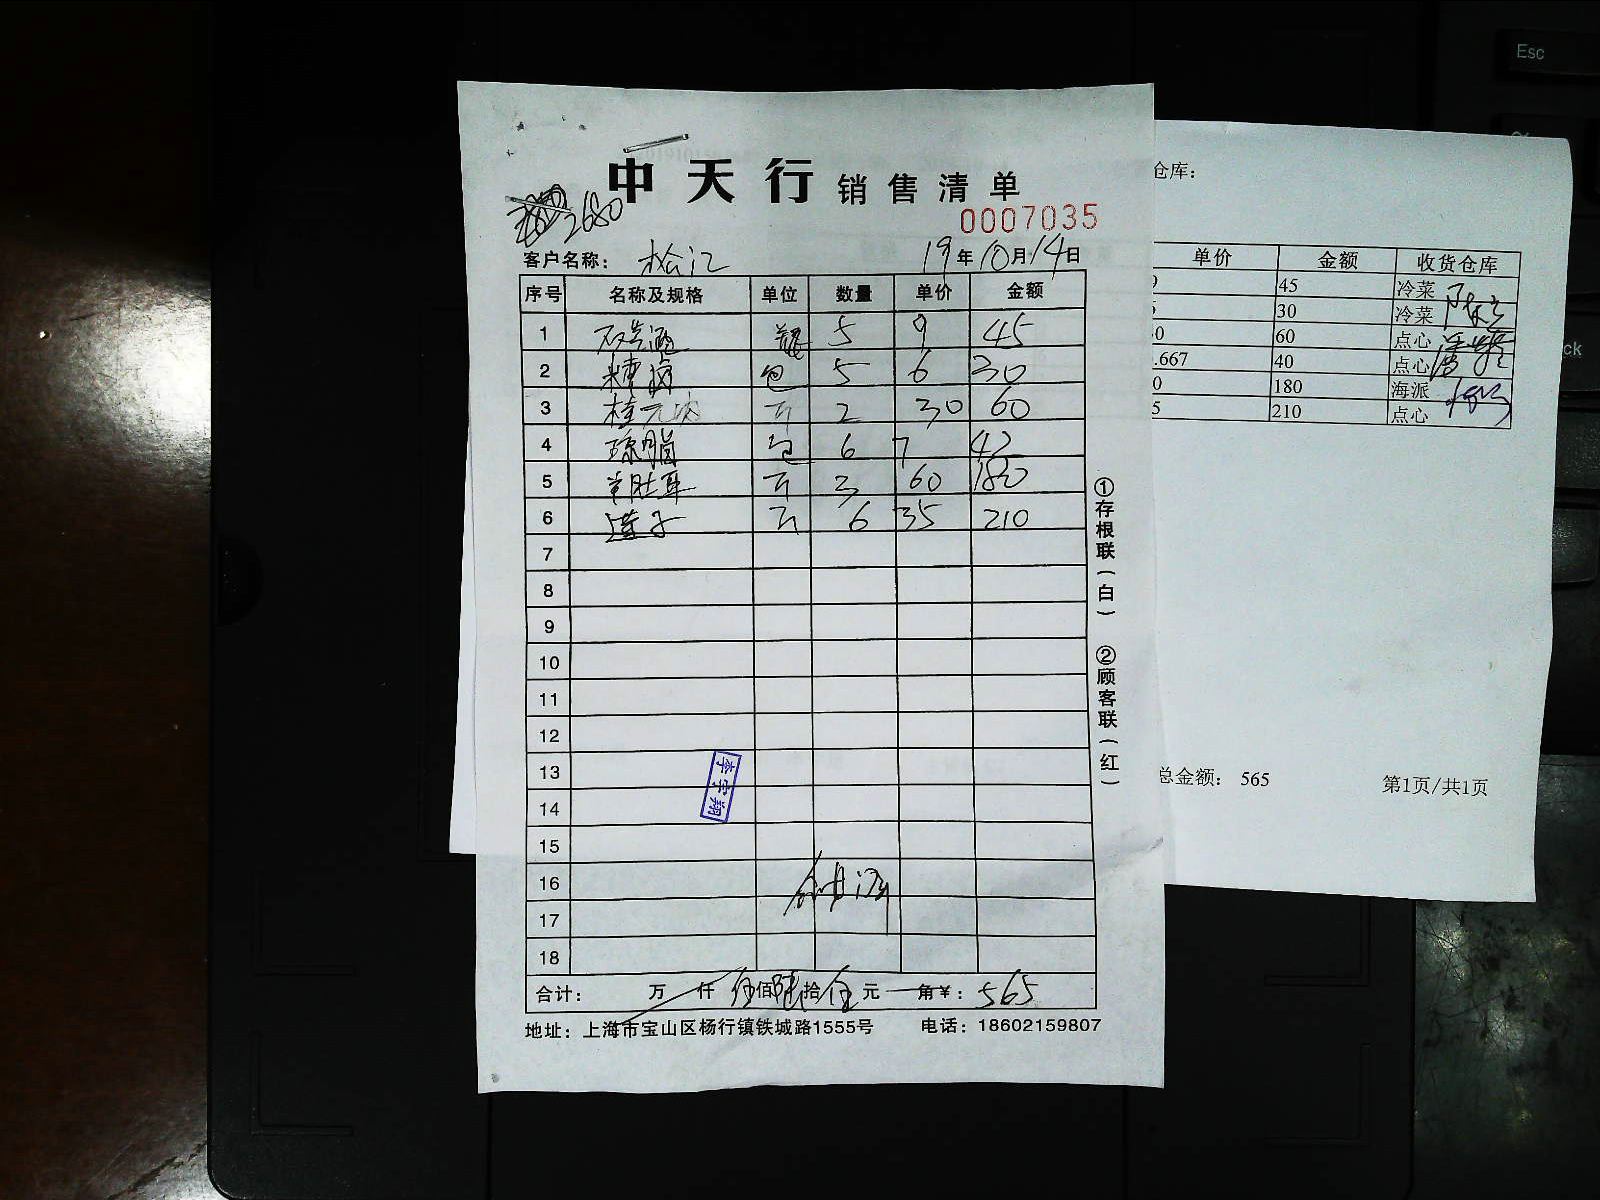 中天行 销售清单
0007035
2680
客户名称： 松江 19年10月14日
序号 名称及规格 单位 数量 单价 金额
1 5 9 45
2 包 5 6 30
3 桂元肉 斤 2 30 60
4 琼脂 包 6 7 42
5 羊肚耳 斤 3 60 180
6 莲子 斤 6 35 210
7
8
9
10
11
12
13
14
15
16
17
18
李宇翔
合计： 万 仟 伍佰陆拾伍元 角¥：565
地址：上海市宝山区杨行镇铁城路1555号 电话：18602159807
①存根联（白） ②顾客联（红）
仓库：
单价 金额 收货仓库
45 冷菜
30 冷菜
60 点心
.667 40 点心
0 180 海派
5 210 点心
总金额： 565 第1页/共1页
Esc
ck